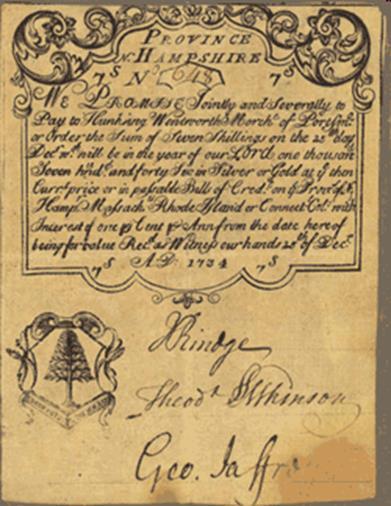 PROVINCE
N: HAMPSHIRE
7s No (643) 7s
We PROMISE Jointly and Severally to
Pay to Hunking Wentworth March.t of Portsm.o
or Order the Sum of Seven Shillings on the 25th day
Dec.m.r will be in the year of our LORD one thousand
Seven hnd.d and forty Six in Silver or Gold at ye then
Curr.t price or in passable Bill.s of Cred.t on ye Provs of N.
Hamp.r Massach.ts Rhode Island or Connect.Col.y with
Interest of one p Cent p Ann from the date here of
being for value Rec.d as Witness our hands 25th of Dec.r
7s A.D: 1734 7s
JRindge
Theodr Atkinson
Geo. Jaffr